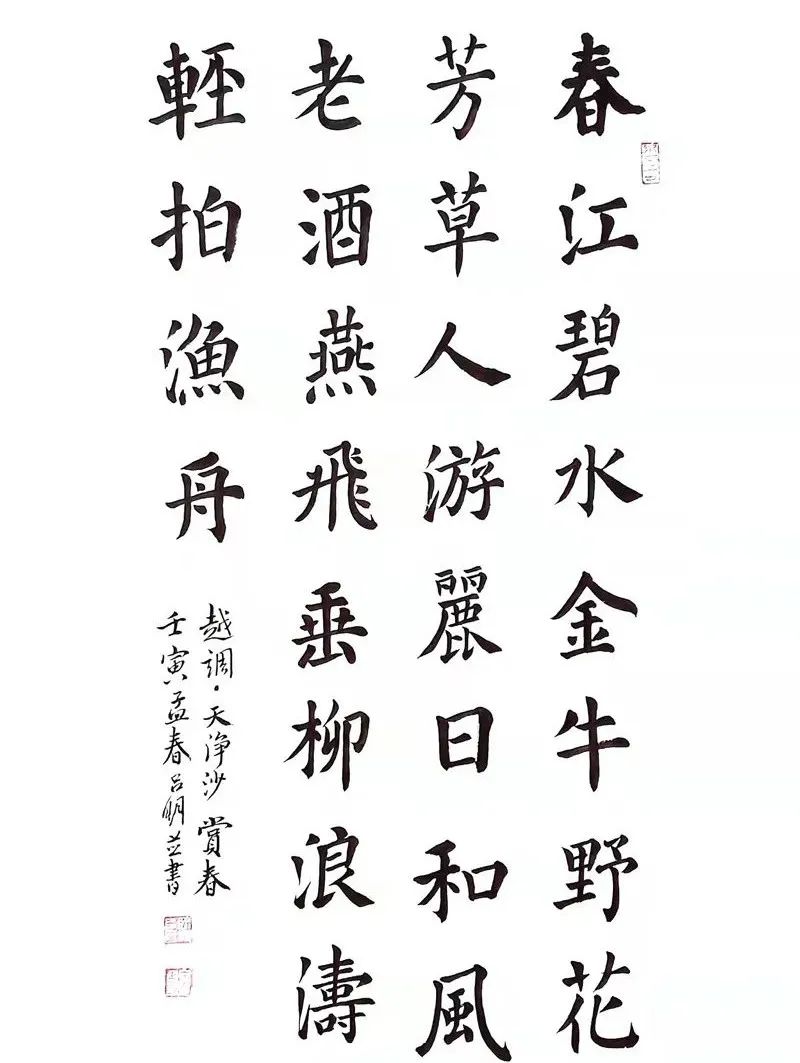 春江碧水金牛野花
芳草人游麗日和風
老酒燕飛垂柳浪濤
輕拍漁舟
越調·天淨沙 賞春
壬寅孟春呂明並書